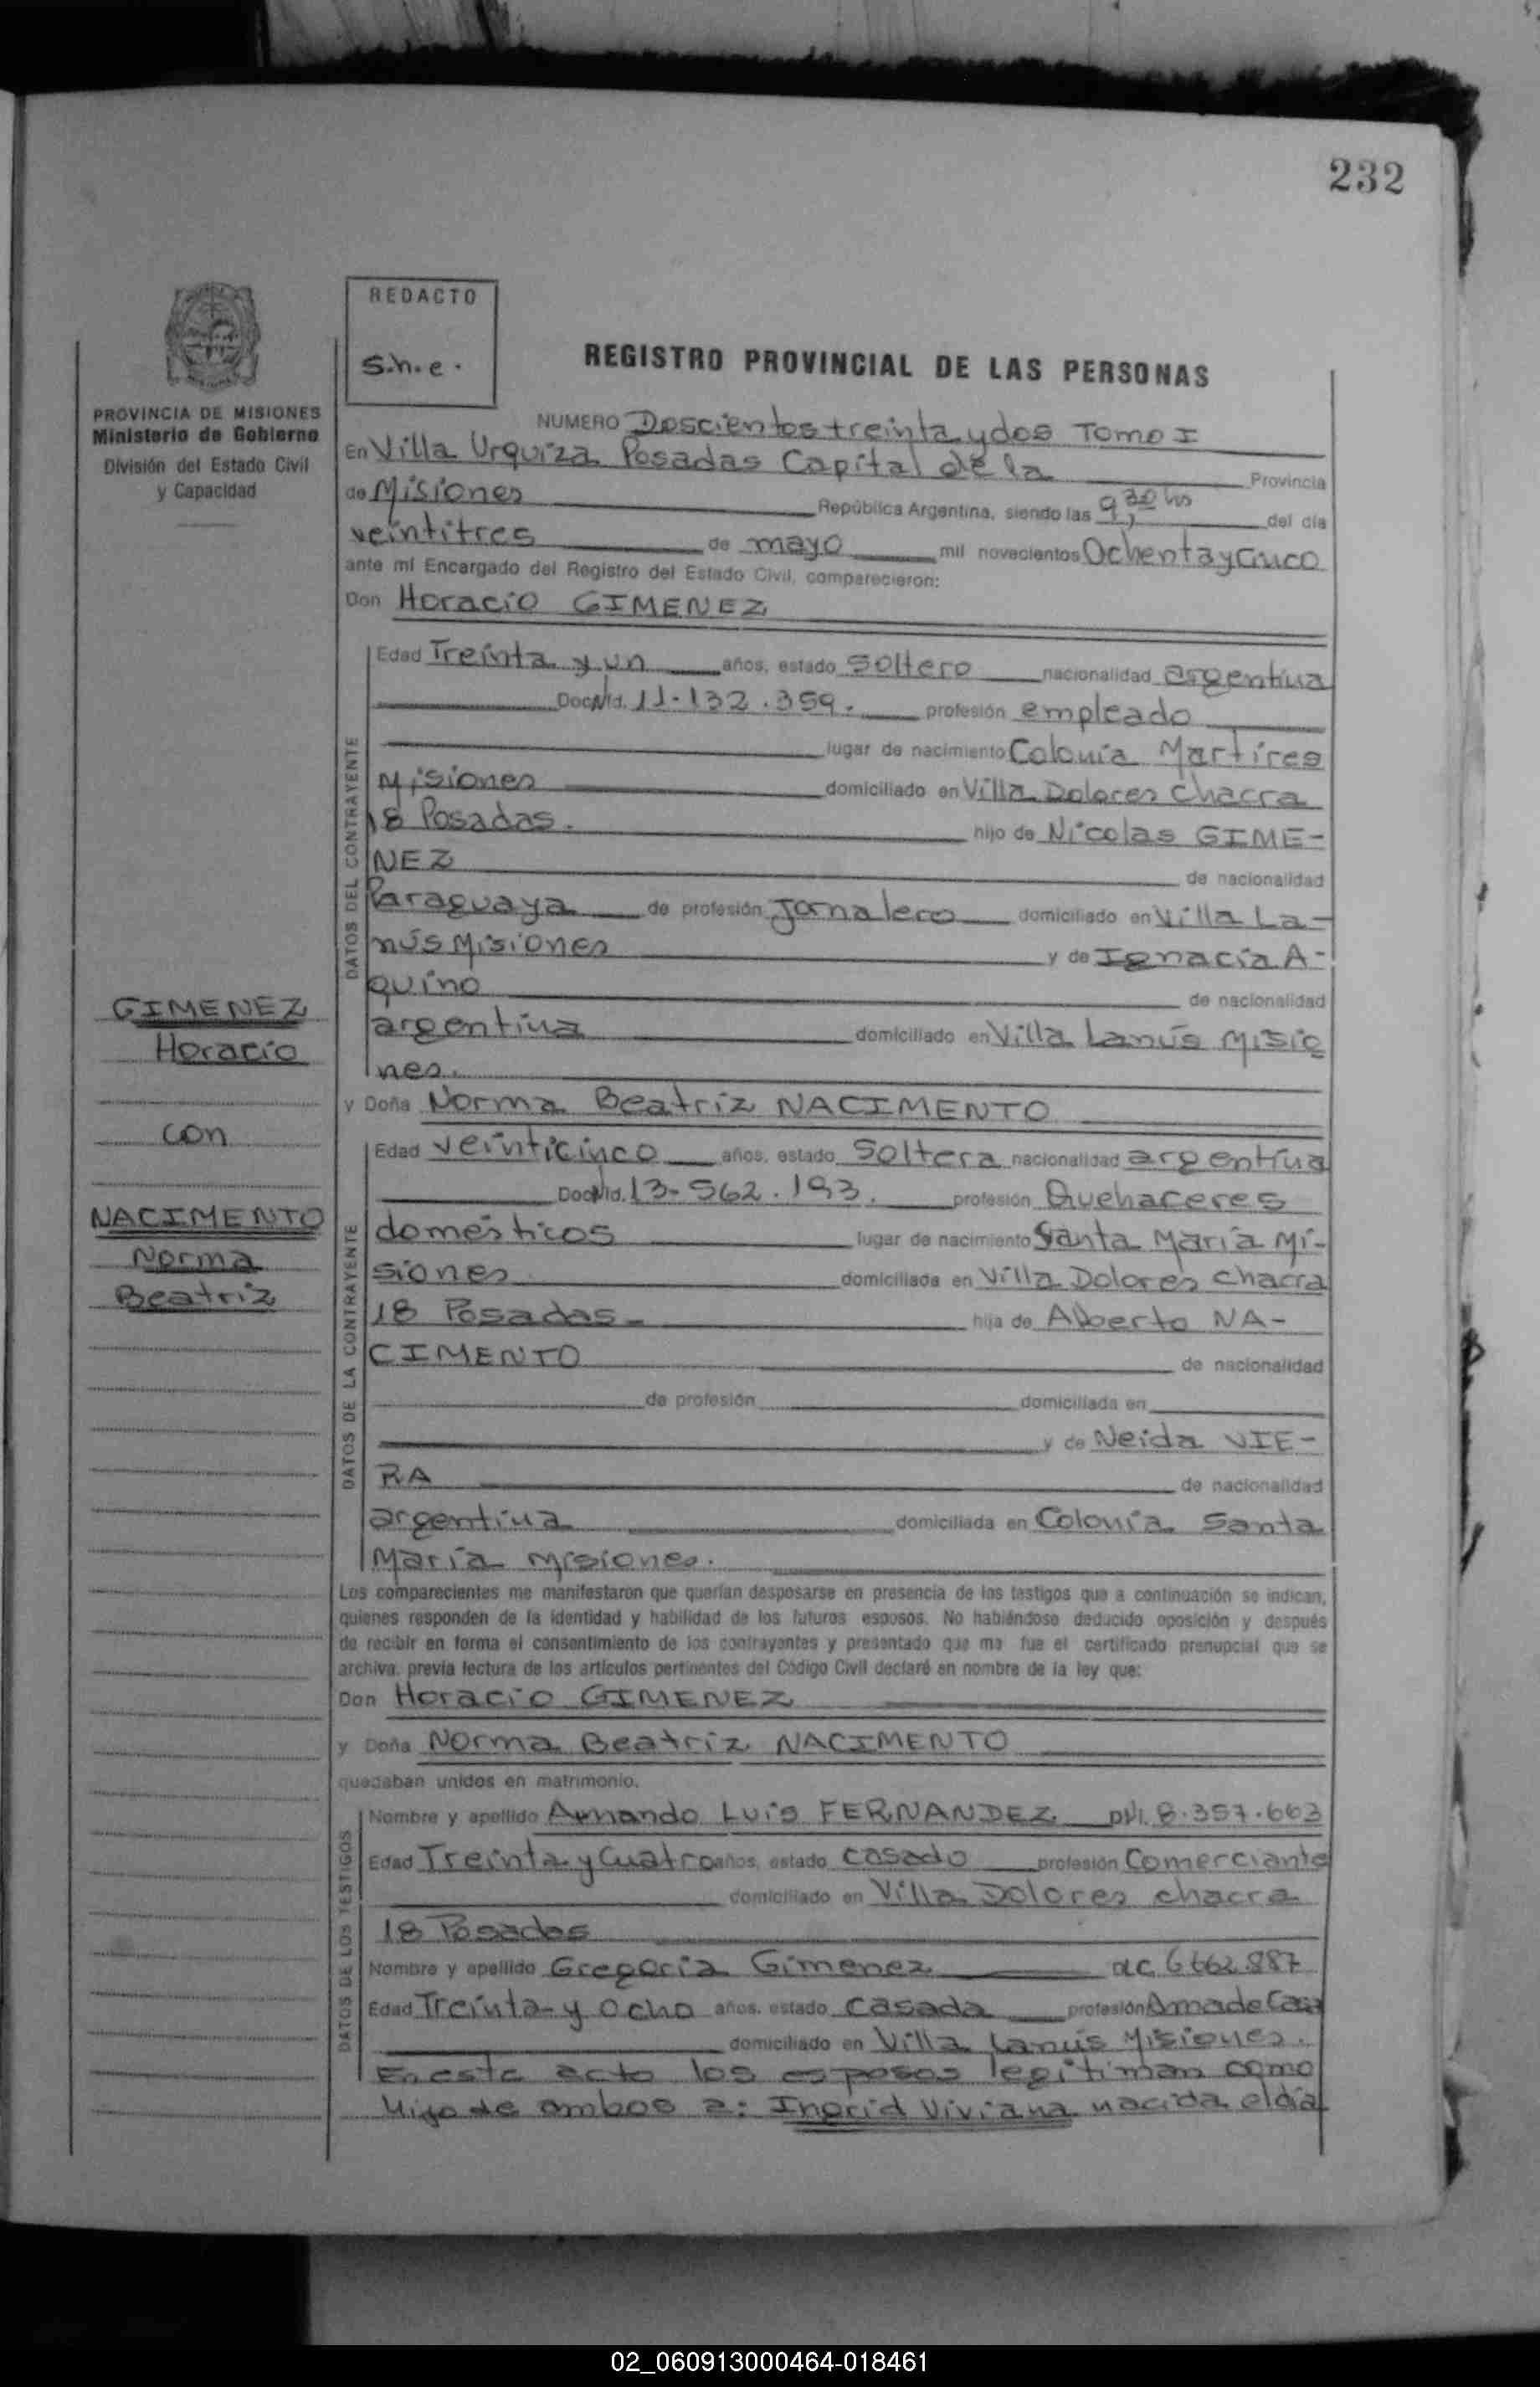 232
REDACTO
S.n.e.
PROVINCIA DE MISIONES
Ministerio de Gobierno
División del Estado Civil
y Capacidad
REGISTRO PROVINCIAL DE LAS PERSONAS
NUMERO Doscientos treinta y dos Tomo I
En Villa Urquiza Posadas Capital de la Provincia
de Misiones República Argentina, siendo las 9,30 hs del día
veintitres de mayo mil novecientos Ochenta y Cinco
ante mí Encargado del Registro del Estado Civil, comparecieron:
Don Horacio GIMENEZ
DATOS DEL CONTRAYENTE
Edad Treinta y un años, estado Soltero nacionalidad argentina
Doc. Nid. 11-132.359. profesión empleado
lugar de nacimiento Colonia Martires
Misiones domiciliado en Villa Dolores chacra
18 Posadas. hijo de Nicolas GIME-
NEZ de nacionalidad
Paraguaya de profesión Jornalero domiciliado en Villa La-
nús Misiones y de Ignacia A-
quino de nacionalidad
argentina domiciliado en Villa Lanús Misio
nes.
y Doña Norma Beatriz NACIMENTO
DATOS DE LA CONTRAYENTE
Edad veinticinco años, estado Soltera nacionalidad argentina
Doc. Nid. 13-562.193. profesión Quehaceres
domésticos lugar de nacimiento Santa María Mi-
siones domiciliada en Villa Dolores chacra
18 Posadas- hija de Alberto NA-
CIMENTO de nacionalidad
de profesión domiciliada en
y de Neida VIE-
RA de nacionalidad
argentina domiciliada en Colonia Santa
María Misiones.
GIMENEZ
Horacio
con
NACIMENTO
Norma
Beatriz
Los comparecientes me manifestaron que querían desposarse en presencia de los testigos que a continuación se indican,
quienes responden de la identidad y habilidad de los futuros esposos. No habiéndose deducido oposición y después
de recibir en forma el consentimiento de los contrayentes y presentado que me fue el certificado prenupcial que se
archiva, previa lectura de los artículos pertinentes del Código Civil declaré en nombre de la ley que:
Don Horacio GIMENEZ
y Doña Norma Beatriz NACIMENTO
quedaban unidos en matrimonio.
DATOS DE LOS TESTIGOS
Nombre y apellido Armando Luis FERNANDEZ DNI. 8.357.663
Edad Treinta y Cuatro años, estado casado profesión Comerciante
domiciliado en Villa Dolores chacra
18 Posadas
Nombre y apellido Gregoria Gimenez LC 6662.887
Edad Treinta y Ocho años, estado casada profesión Ama de Casa
domiciliado en Villa Lanús Misiones.
En este acto los esposos legitiman como
hija de ambos a: Ingrid Viviana nacida el día
02_060913000464-018461